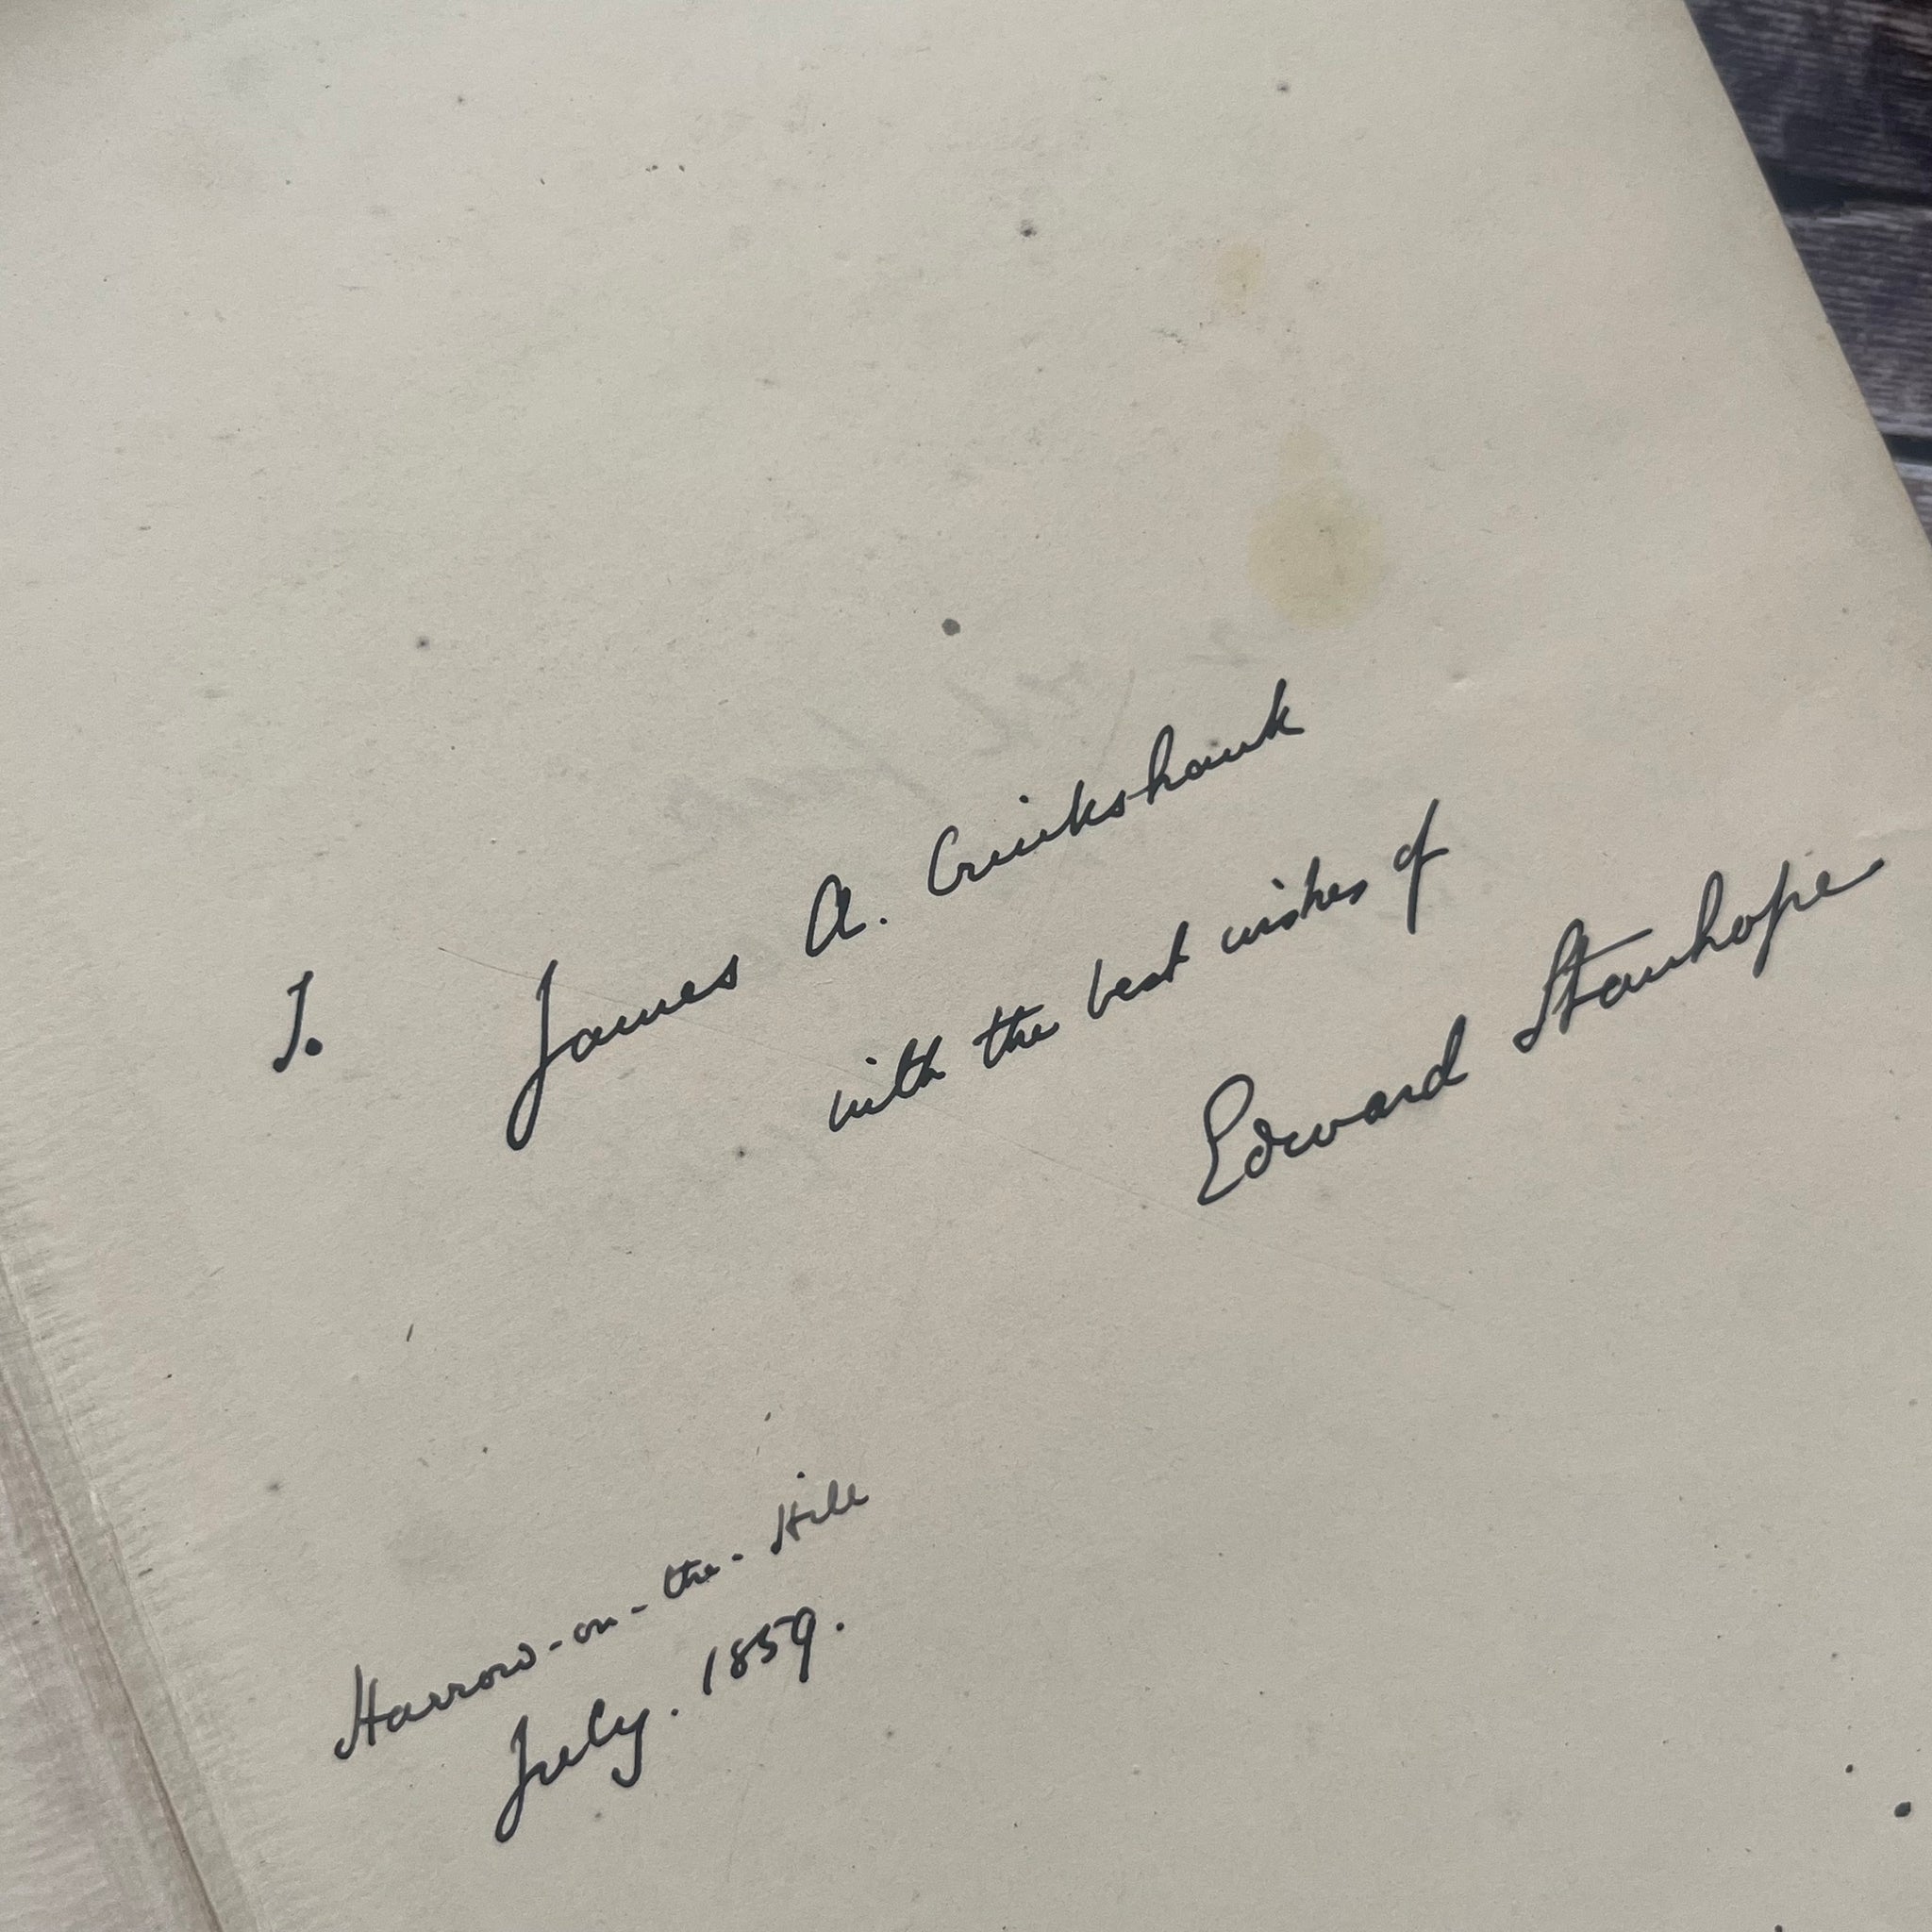 To James A. Cruikshank
with the best wishes of
Edward Stanhope
Harrow-on-the-Hill
July. 1859.